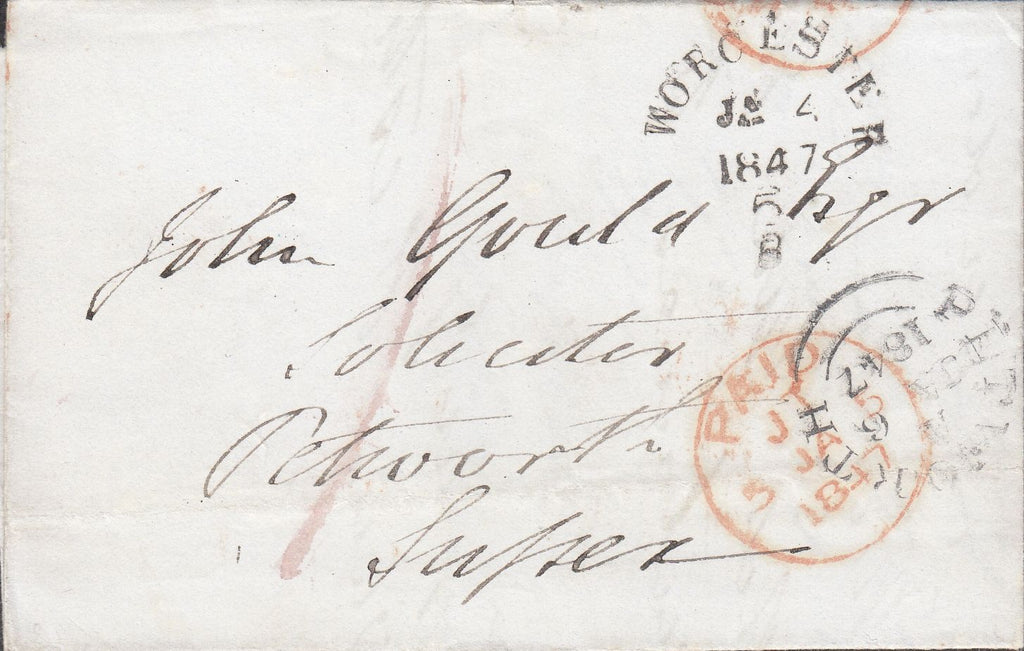 WORCESTER
JA 4
1847
5
B
John Gould Esqr
Solicitor
Petworth
Sussex
PETWORTH
JA
6
1847
PAID
5 JA 5
1847